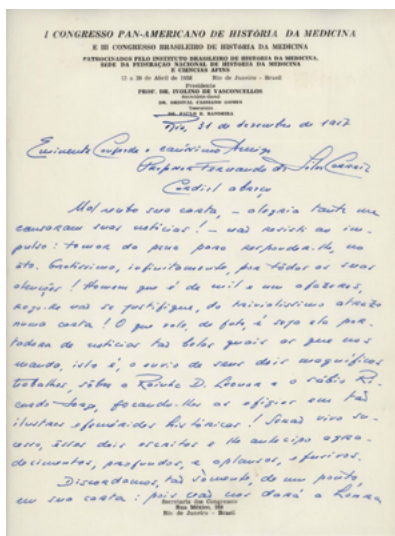 I CONGRESSO PAN-AMERICANO DE HISTÓRIA DA MEDICINA
E III CONGRESSO BRASILEIRO DE HISTÓRIA DA MEDICINA
PATROCINADOS PELO INSTITUTO BRASILEIRO DE HISTORIA DA MEDICINA,
SEDE DA FEDERAÇÃO NACIONAL DE HISTORIA DA MEDICINA
E CIENCIAS AFINS
de Abril de 1958 Rio de Janeiro - Brasil
Presidente
PROF. DR. IVOLINO DE VASCONCELLOS
Secretario-Geral
DR. ORDIVAL CASSIANO GOMES
Tesoureiro
DR. PAULO
Rio, 31 de dezembro de 1957
Eminente Confrade e caríssimo Amigo
Professor Fernando da Silva Correia
Cordial abraço
Mal recebo sua carta, - alegria tanta me
causaram suas notícias! - não resisti ao im-
pulso: tomar da pena para responder-lhe, no
ato. Gratíssimo, infinitamente, por tôdas as suas
atenções! Homem que é de mil e um afazeres,
rogo-lhe não se justifique, do trivialíssimo atrazo
numa carta! O que vale, de fato, é seja ela por-
tadora de notícias tão belas quais as que nos
manda, isto é, o envio de seus dois magníficos
trabalhos, sôbre a Rainha D. Leonor e o sábio Ri-
cardo Jorge, focando-lhes as efígies em tão
ilustres efemérides históricas! Serão vivo su-
cesso, êsses dois escritos e lhe antecipo agra-
decimentos, profundos, e aplausos, efusivos.
Discordamos, tão sòmente, de um ponto,
em sua carta: pois não nos dará a honra
Secretaria dos Congressos
Rua México,
Rio de Janeiro - Brasil